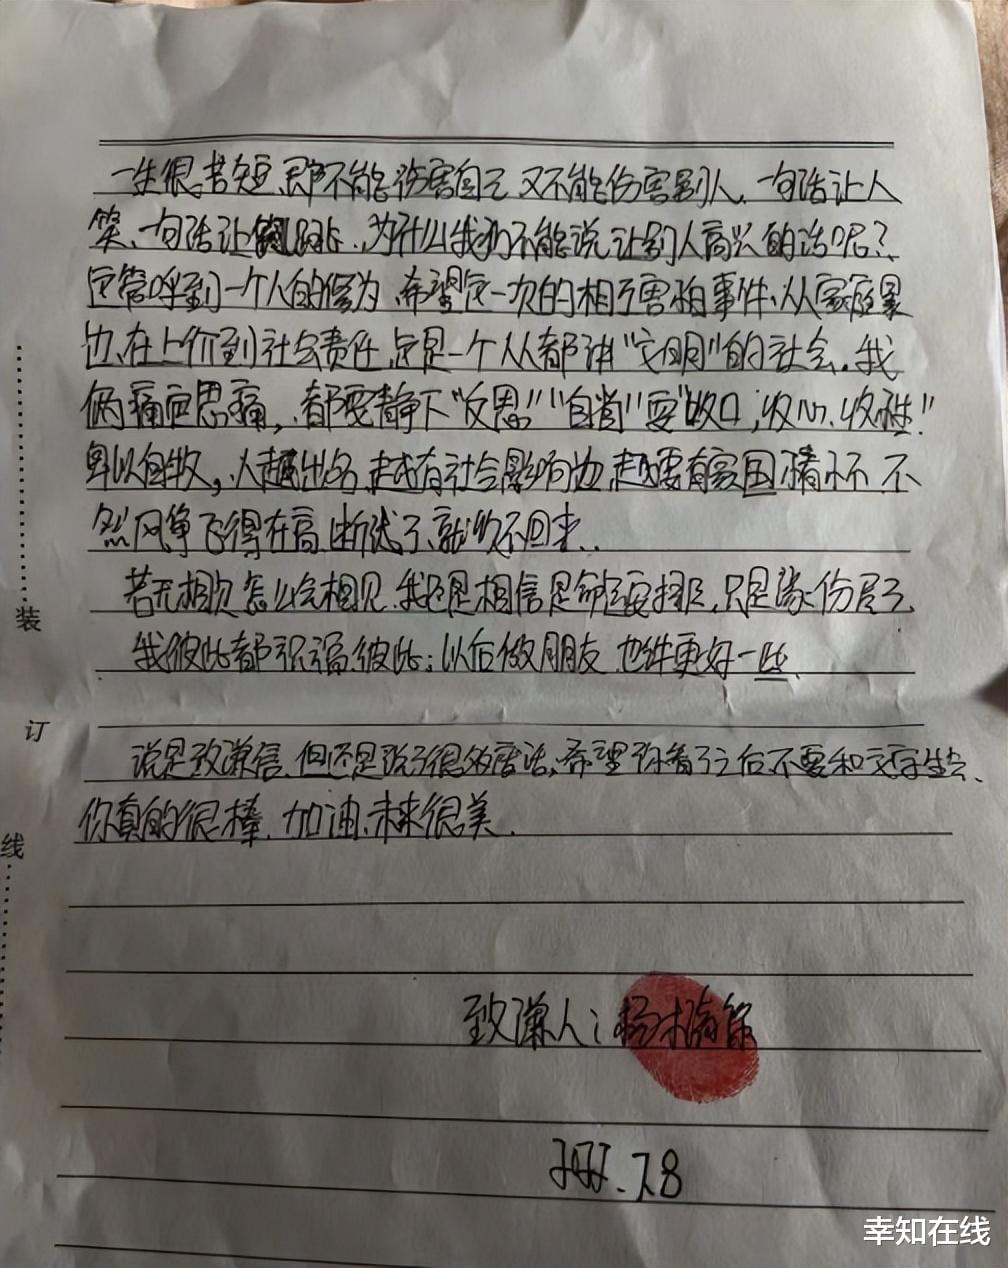 一生很苦短,即不能伤害自己 又不能伤害别人,一句话让人
笑、一句话让 跳,为什么我们不能说让别人高兴的话呢?
这管呼到一个人的修为,希望这一次的相互害怕事件、从家庭暴
边,在上价到社会责任,这是一个人人都讲“文明”的社会。我
俩痛定思痛,都要静下“反思”“自省”要“收口,收心,收性!”
卑以自牧,人越出名,越有社会影响边,越要有家国情怀,不
然风筝飞得在高,断线了,就收不回来..
若无相欠怎么会相见,我还是相信是命运安排,只是缘份尽了,
我彼此都祝福彼此;以后做朋友,也许更好一些
说是致谦信,但还是说了很多废话,希望你看了之后不要和文字生气、
你真的很棒,加油,未来很美.
致谦人:杨
7.8
装
订
线
幸知在线